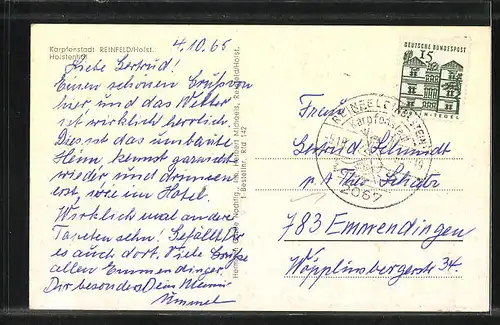 Karpfenstadt REINFELD/Holst.
Holstentor
4.10.65
Liebe Gertrud!
Einen schönen Gruß von
hier und das Wetter
ist wirklich herrlich.
Dies ist das umbaute
Heim, kennst garnicht
wieder und drinnen
erst, wie im Hotel.
Wirklich mal andere
Tapeten sehn! Gefällt Ihr
es auch dort. Viele Grüße
allen Emmendinger.
Dir besonders Dein
Herbert Michaels, Reinfeld/Holst.
1-Bestellnr. Rld 142
DEUTSCHE BUNDESPOST
15
TEGEL
REINFELD (HOLST)
Karpfenstadt
2067
Frau
Gertrud Schmidt
783 Emmendingen
Wöpplinsbergerstr 34.